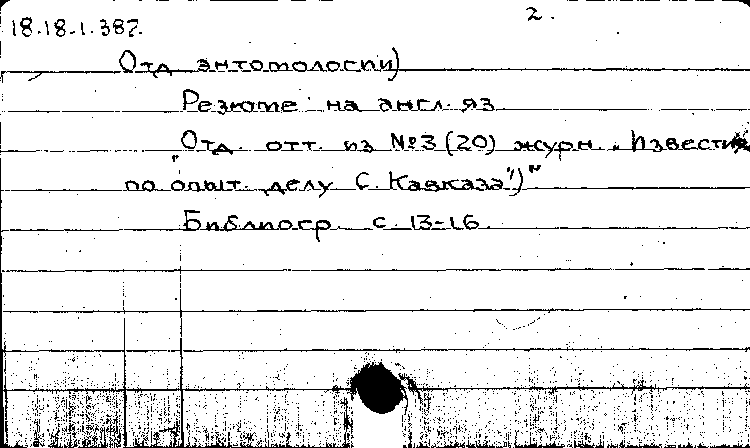 18.18.1.387. 2.
Отд энтомологии)
Резюме на англ. яз.
"Отд. отт. из №3 (20) журн. „Известия
по опыт. делу С. Кавказа")"
Библиогр. с. 13-16.